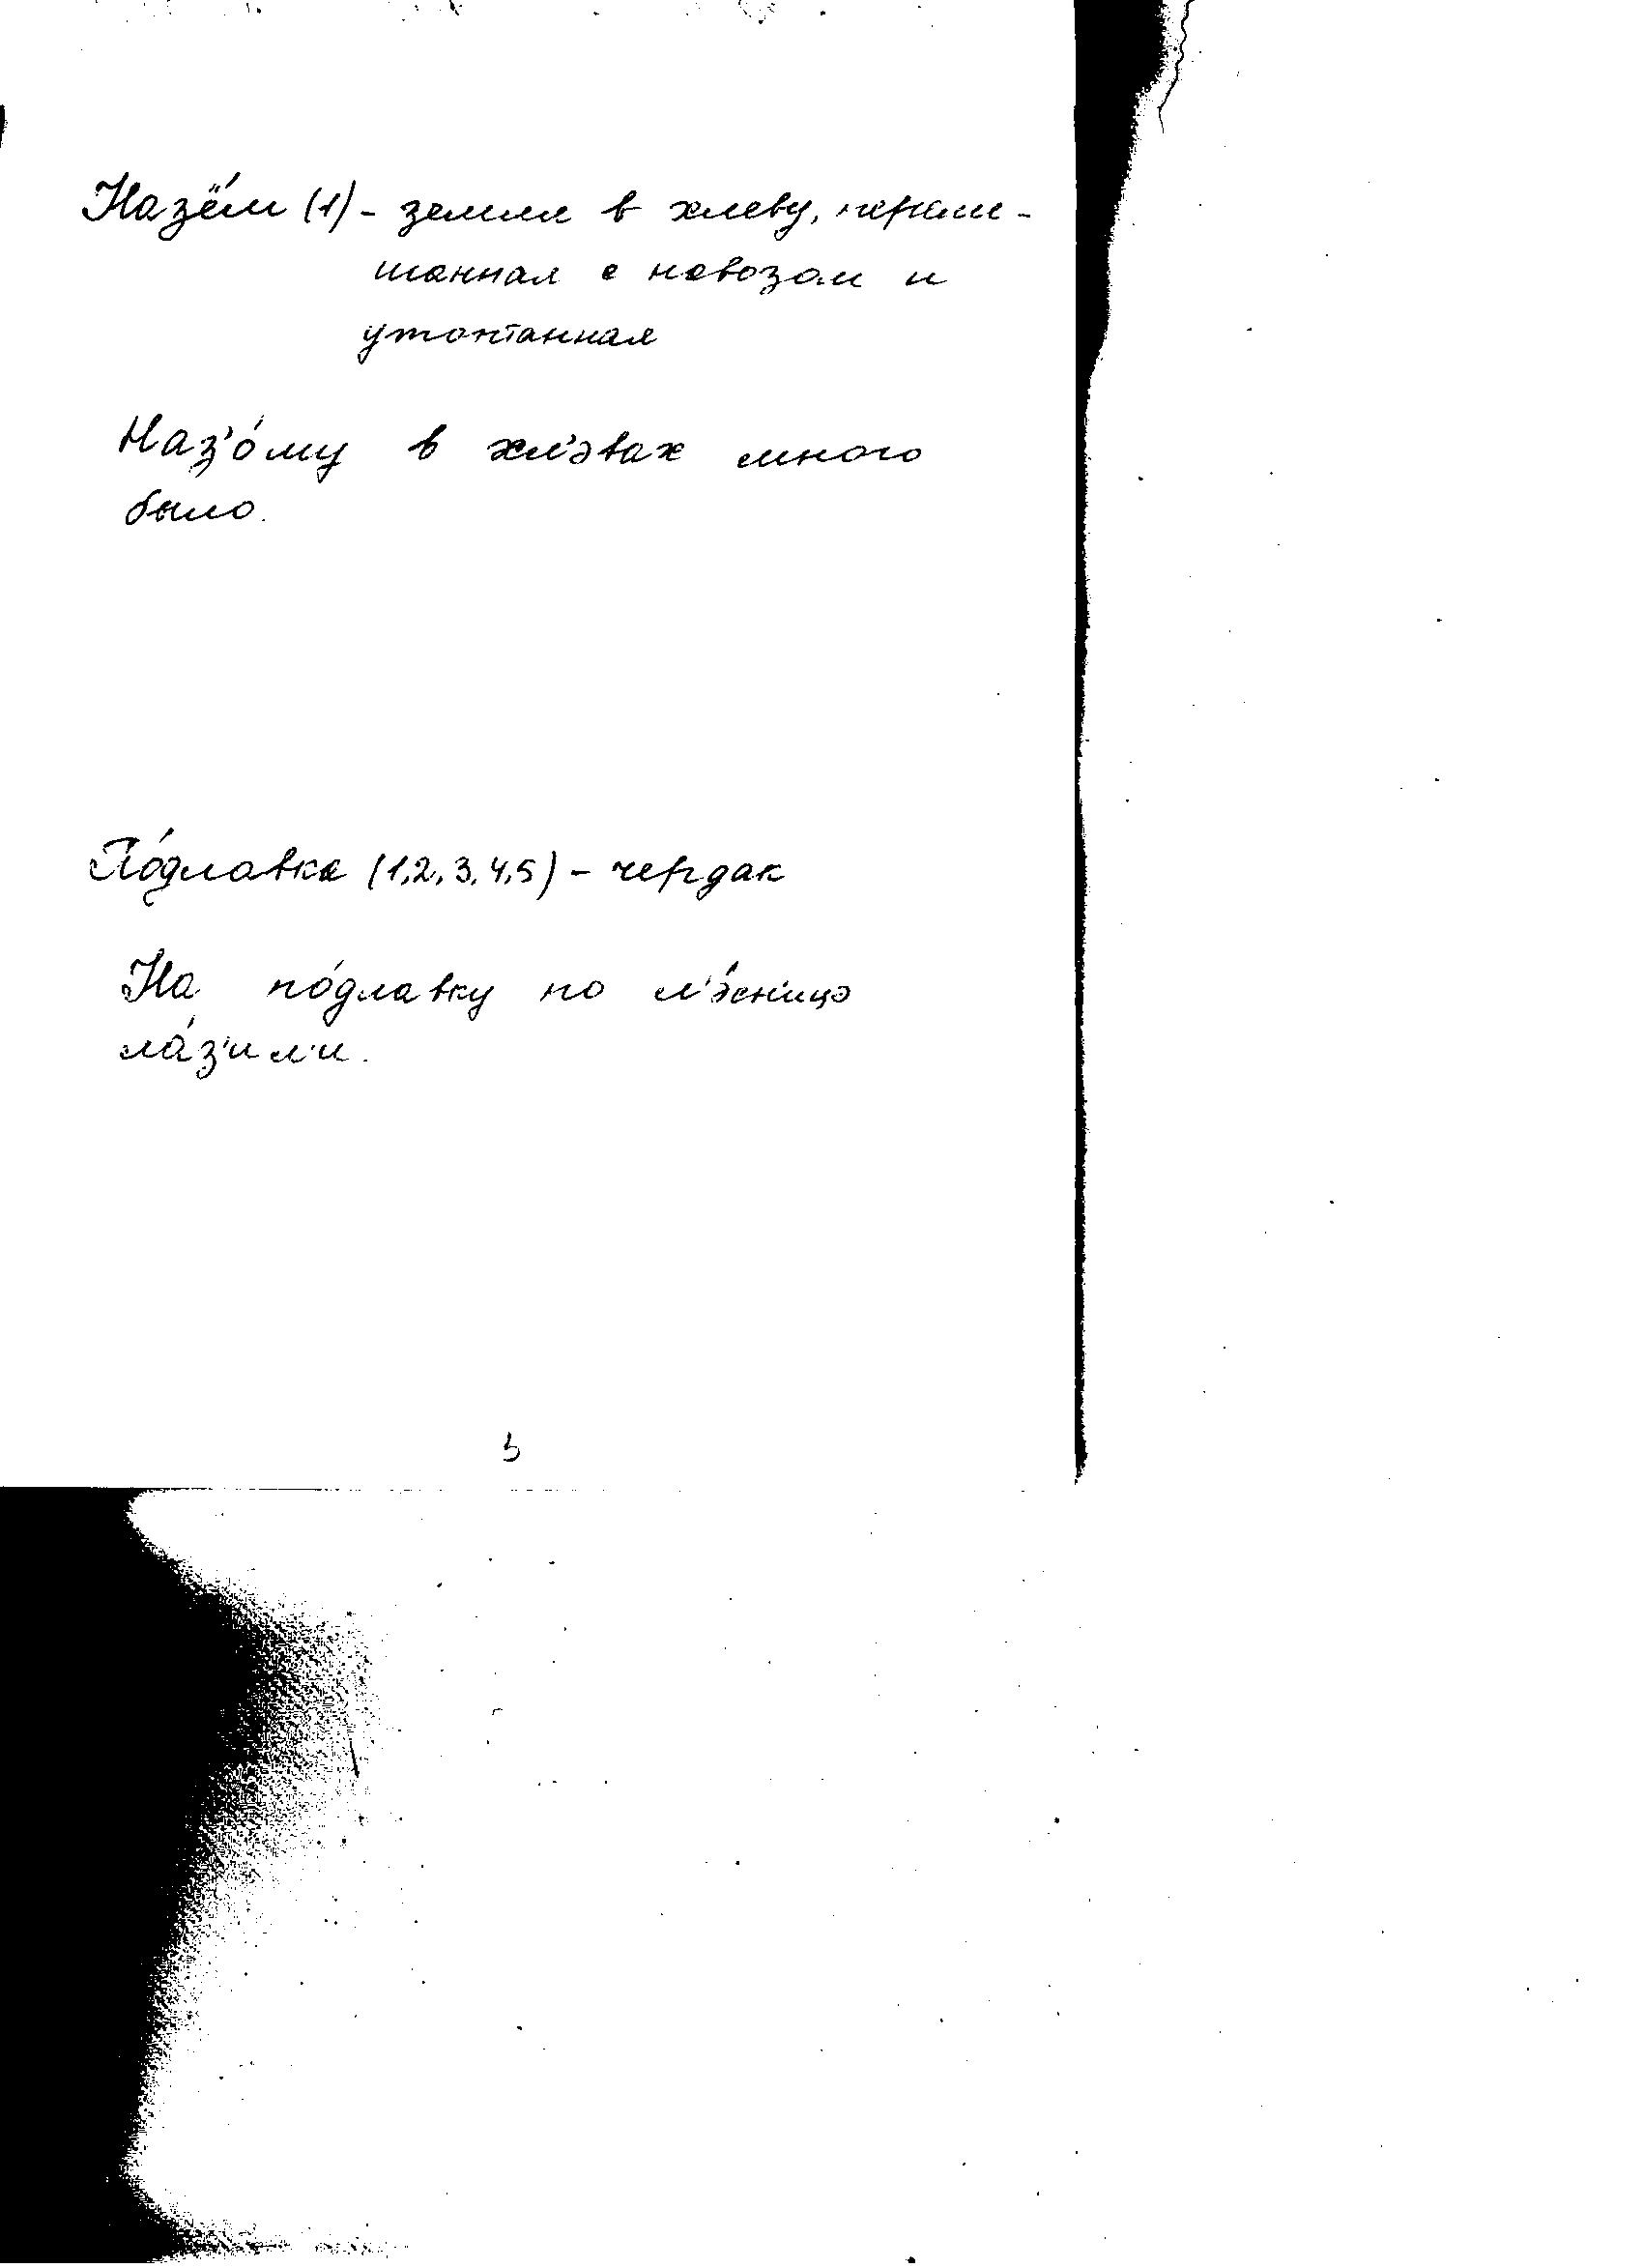 Назём (1) - земля в хлеву, переме-
шанная с навозом и
утоптанная
Наз'о́му в хл'эвах много
было.
По́длавка (1,2,3,4,5) - чердак
На по́длавку по л'э́сн'ицэ
ла́з'ил'и.